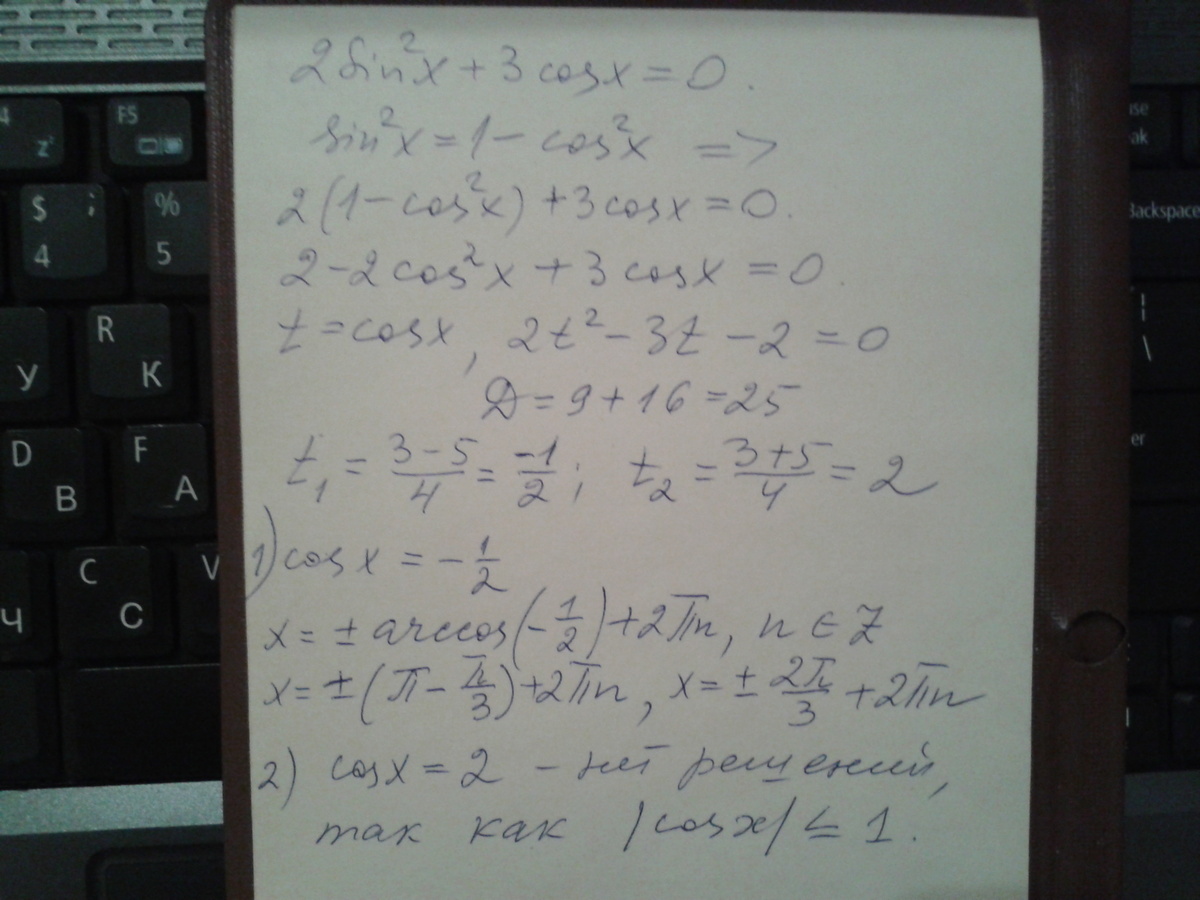 2sin²x + 3cosx = 0.
sin²x = 1 - cos²x =>
2(1 - cos²x) + 3cosx = 0.
2 - 2cos²x + 3cosx = 0.
t = cosx, 2t² - 3t - 2 = 0
D = 9 + 16 = 25
t₁ = (3-5)/4 = -1/2; t₂ = (3+5)/4 = 2
1) cosx = -1/2
x = ± arccos(-1/2) + 2πn, n ∈ Z
x = ±(π - π/3) + 2πn, x = ± 2π/3 + 2πn
2) cosx = 2 - нет решений,
так как |cosx| ≤ 1.
4 z' F5
$ ; 4 % 5
У R К
D В F А
Ч C С V
ak
Backspace
\
er